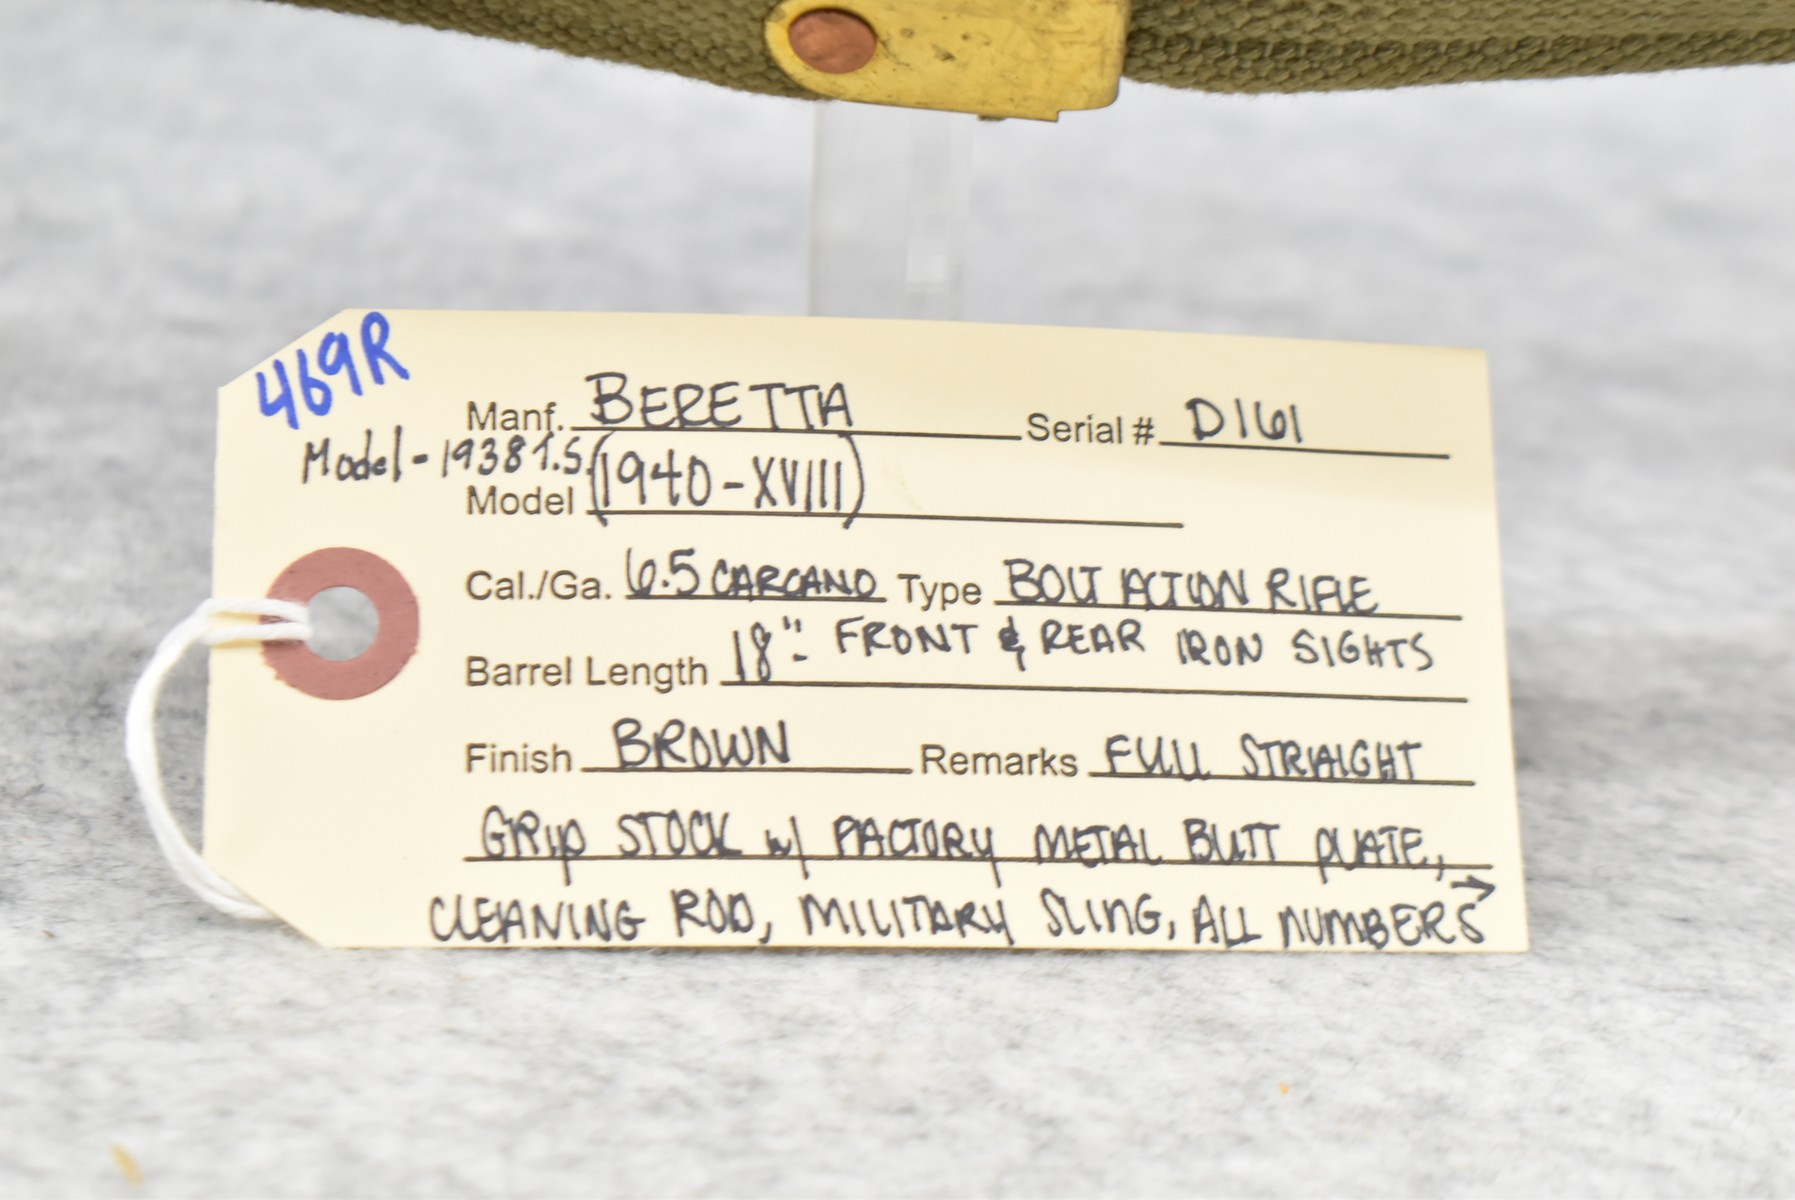 469R
Manf. BERETTA Serial # D161
Model - 1938 T.S.
Model (1940-XVIII)
Cal./Ga. 6.5 CARCANO Type BOLT ACTION RIFLE
Barrel Length 18" - FRONT & REAR IRON SIGHTS
Finish BROWN Remarks FULL STRAIGHT
GRIP STOCK w/ FACTORY METAL BUTT PLATE,
CLEANING ROD, MILITARY SLING, ALL NUMBERS →